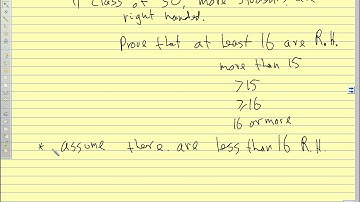 class of 30, more students are
right handed.
Prove that at least 16 are R.H.
more than 15
>15
≥16
16 or more
* assume there are less than 16 R.H.